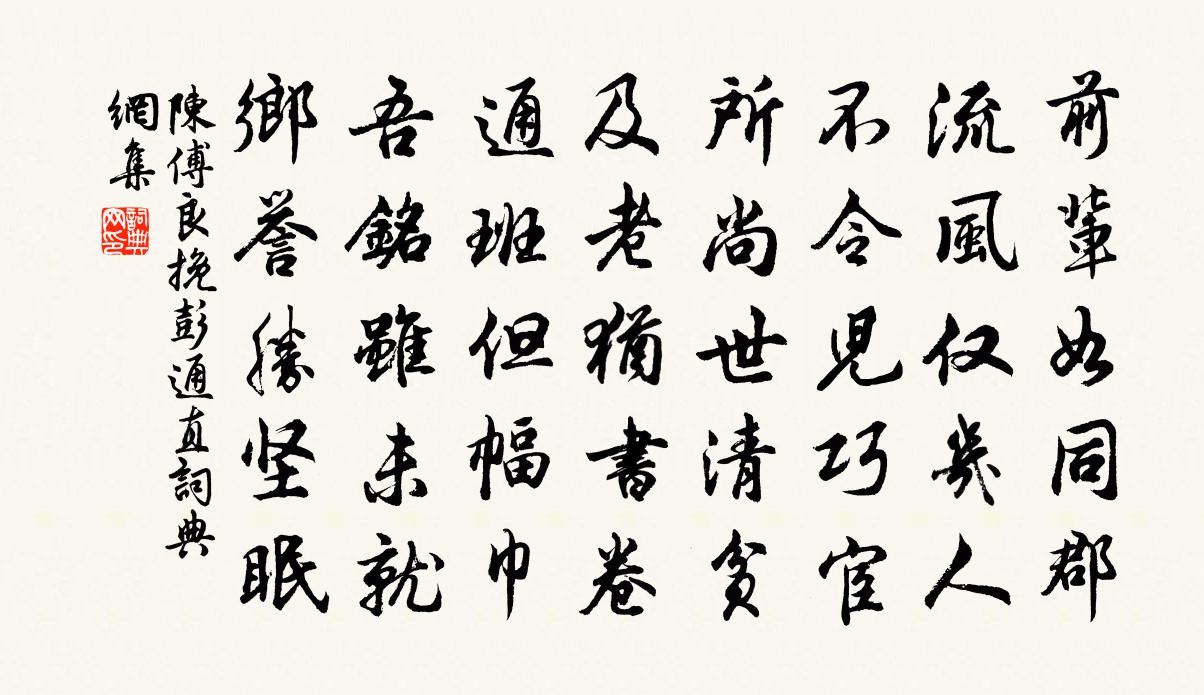 前輩如同郡
流風仅幾人
不令児巧宦
所尚世清貧
及老猶書卷
通班但幅巾
吾銘雖未就
鄉誉勝坚眠
陳傅良挽彭通直詞典
網集
詞典
网印